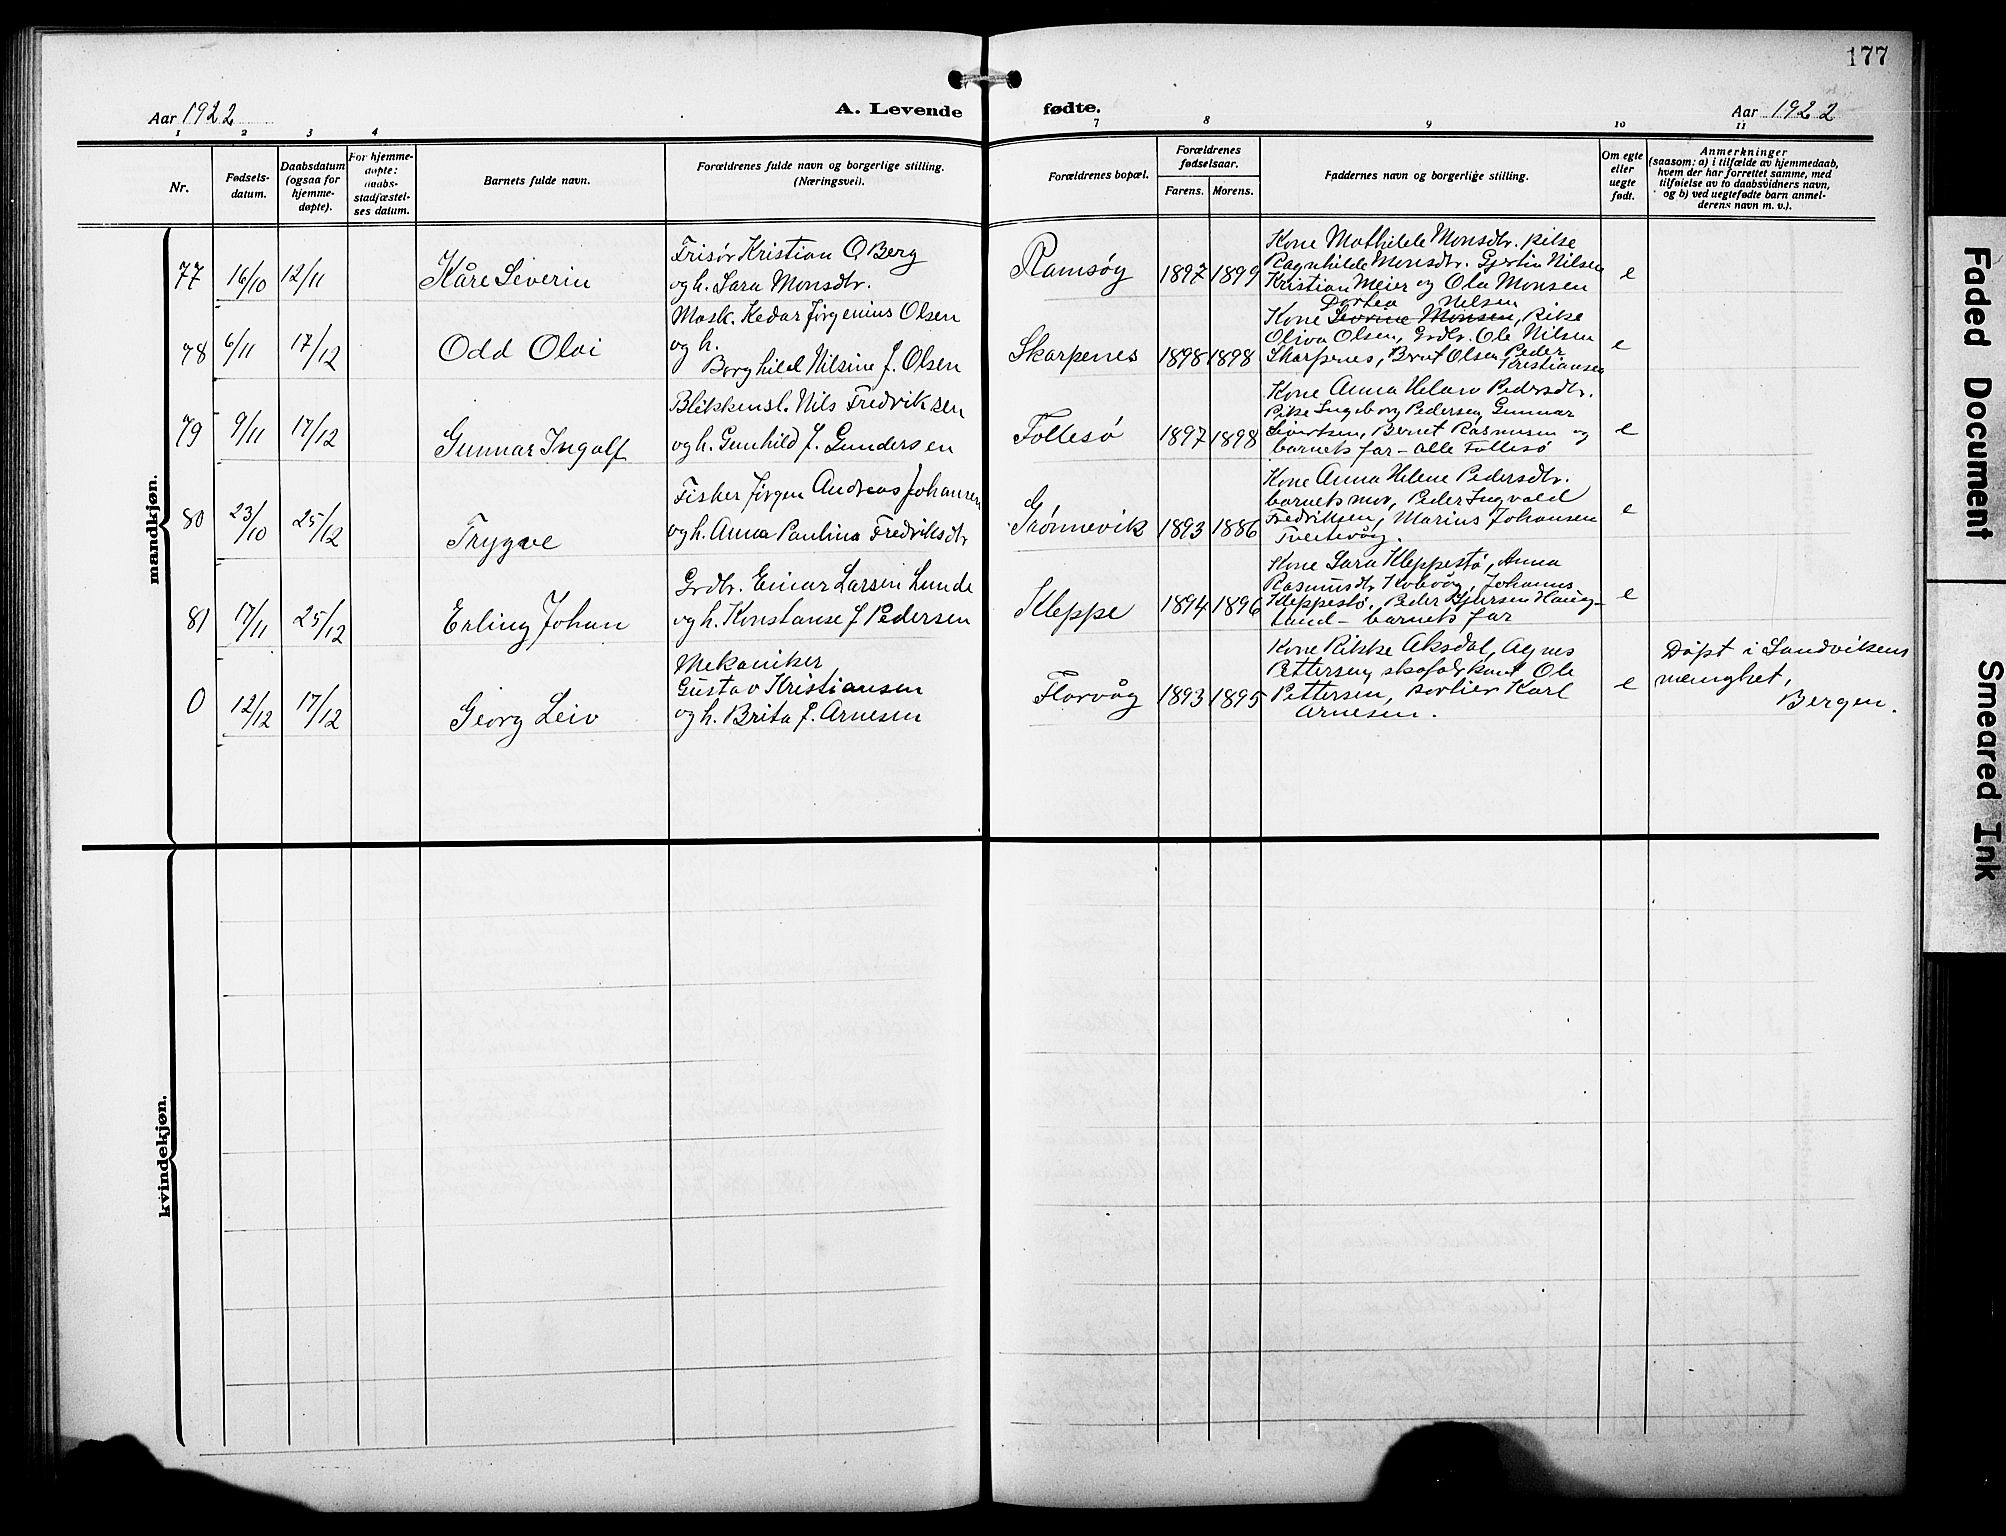 177
Aar 1922
A. Levende
fødte.
Aar 1922
1 2 3 4 7 8 9 10 11
Nr.
Fødsels-
datum.
Daabsdatum
(ogsaa for
hjemme-
døpte).
For hjemme-
døpte:
daabs-
stadfæstel-
ses datum.
Barnets fulde navn.
Forældrenes fulde navn og borgerlige stilling.
(Næringsvei).
Forældrenes bopæl.
Forældrenes
fødselsaar.
Farens. Morens.
Faddernes navn og borgerlige stilling.
Om egte
eller
uegte
født.
Anmerkninger
(saasom: a) i tilfælde av hjemmedaab,
hvem der har forrettet samme, med
tilføielse av to daabsvidners navn,
og b) ved uegtefødte barn anmel-
derens navn m. v.).
mandkjøn.
77 16/10 12/11 Kåre Severin
Frisør Kristian O Berg
og h. Sara Monsdtr.
Ramsøy 1897 1899
Kone Mathilde Monsdtr. pike
Ragnhilde Monsdtr. Gjertin Nilsen
Kristian Meier og Ola Monsen
e
78 6/11 17/12 Odd Olai
Mask. Kedar Jørgenius Olsen
og h.
Borghild Nilsine f. Olsen
Skarpenes 1898 1898
Dortea Nilsen
Kone Severine Monsen, Pike
Oliva Olsen, Grdbr. Ole Nilsen
Skarpenes, Brnt Olsen Peder
Kristiansen
e
79 9/11 17/12 Gunnar Ingolf
Blikkensl. Nils Fredriksen
og h. Gunhild f. Gundersen
Follesø 1897 1898
Kone Anna Helene Pedersdtr.
Pike Ingeborg Pedersen, Gunnar
Sivertsen, Bernt Rasmusen og
barnets far - alle Follesø
e
80 23/10 25/12 Trygve
Fisker Jørgen Andreas Johansen
og h. Anna Paulina Fredriksdtr
Grønnevik 1893 1886
Kone Anna Helene Pedersdtr.
barnets mor, Peder Ingvald
Fredriksen, Marius Johansen
Tveitevåg.
e
81 17/11 25/12 Erling Johan
Grdbr. Einar Larsen Lunde
og h. Konstanse f Pedersen
Kleppe 1894 1896
Kone Sara Kleppestø, Anna
Rasmusdtr Kobvåg, Johannes
Kleppestø, Peder Gjersen Haug-
land - barnets far
e
0 12/12 17/12 Georg Leiv
Mekaniker
Gustav Kristiansen
og h. Brita f. Arnesen
Florvåg 1893 1895
Kone Rikke Aksdal, Agnes
Pettersen, skofabrikant Ole
Pettersen, portier Karl
Arnesen.
e
Døpt i Sandvikens
menighet,
Bergen.
kvindekjøn.
Faded Document
Smeared Ink